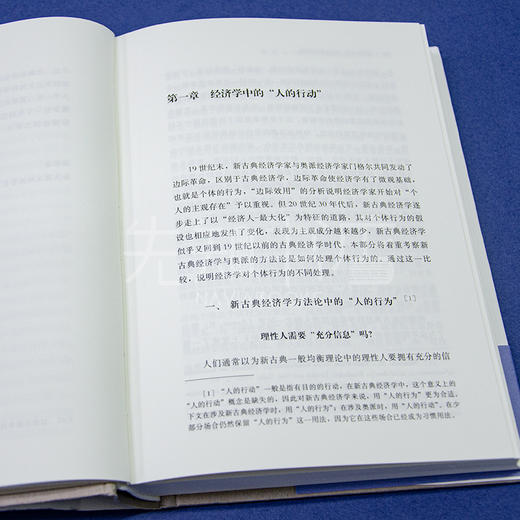 第一章 经济学中的“人的行动”
19 世纪末，新古典经济学家与奥派经济学家门格尔共同发动了
边际革命，区别于古典经济学，边际革命使经济学有了微观基础，
也就是个体的行为，“边际效用”的分析说明经济学家开始对“个
人的主观存在”予以重视。但 20 世纪 30 年代后，新古典经济学逐
步走上了以“经济人—最大化”为特征的道路，其对个体行为的假
设也相应地发生了变化，表现为主观成分越来越少，新古典经济学
似乎又回到 19 世纪以前的古典经济学时代。本部分将着重考察新
古典经济学与奥派的方法论是如何处理个体行为的。通过这一比
较，说明经济学对个体行为的不同处理。
一、 新古典经济学方法论中的“人的行为”［1］
理性人需要“充分信息”吗？
人们通常以为新古典一般均衡理论中的理性人要拥有充分的信
［1］ “人的行动”一般是指有目的的行动，在新古典经济学中，这个意义上的
“人的行动”概念是缺失的，因此对新古典经济学来说，用“人的行为”更为合适。
下文在涉及新古典经济学时，用“人的行为”；在涉及奥派时，用“人的行动”。在少
部分场合仍然保留“人的行为”这一用法，因为它在这些场合已经成为习惯用法。